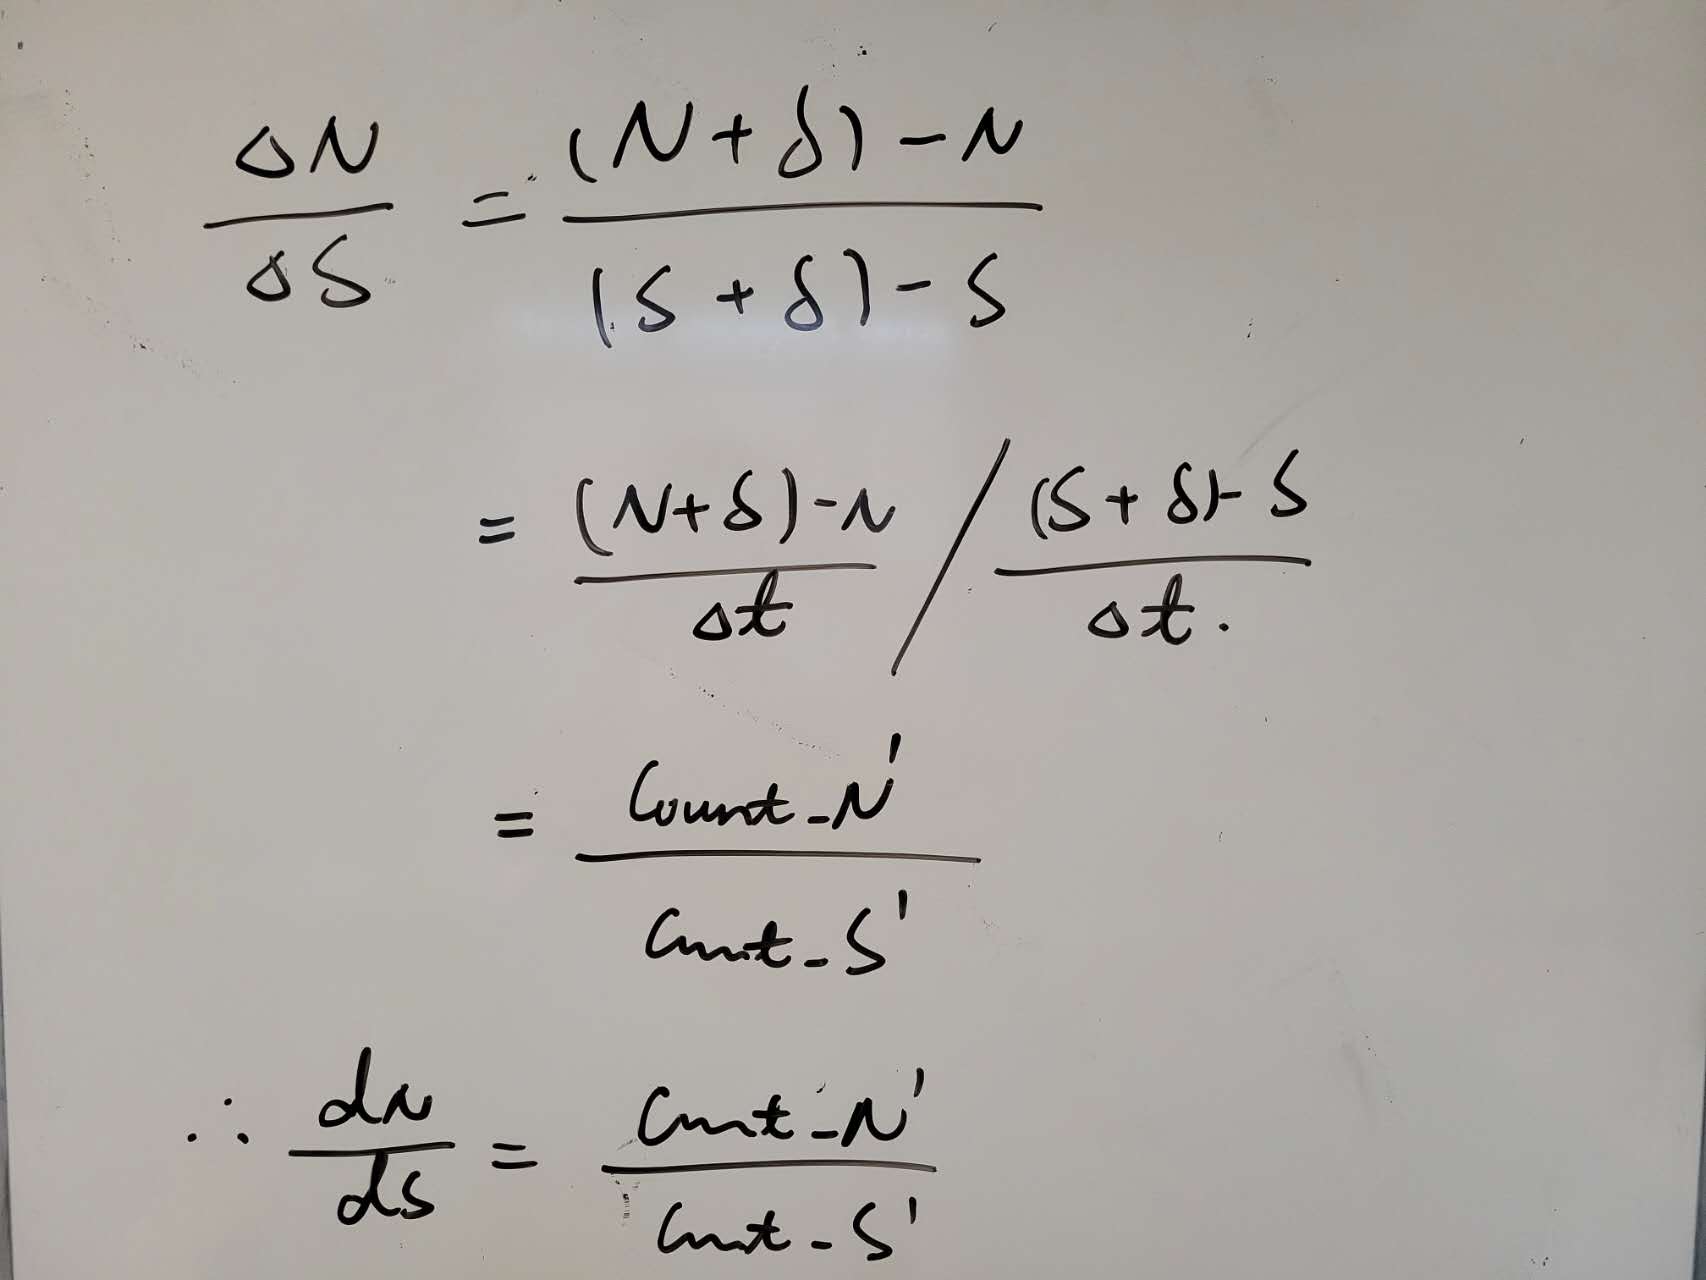 ΔN/ΔS = ((N + δ) - N)/((S + δ) - S)
= ((N+δ)-N)/Δt / ((S+δ)-S)/Δt.
= Count_N'/Count_S'
∴ dN/dS = Count_N'/Count_S'